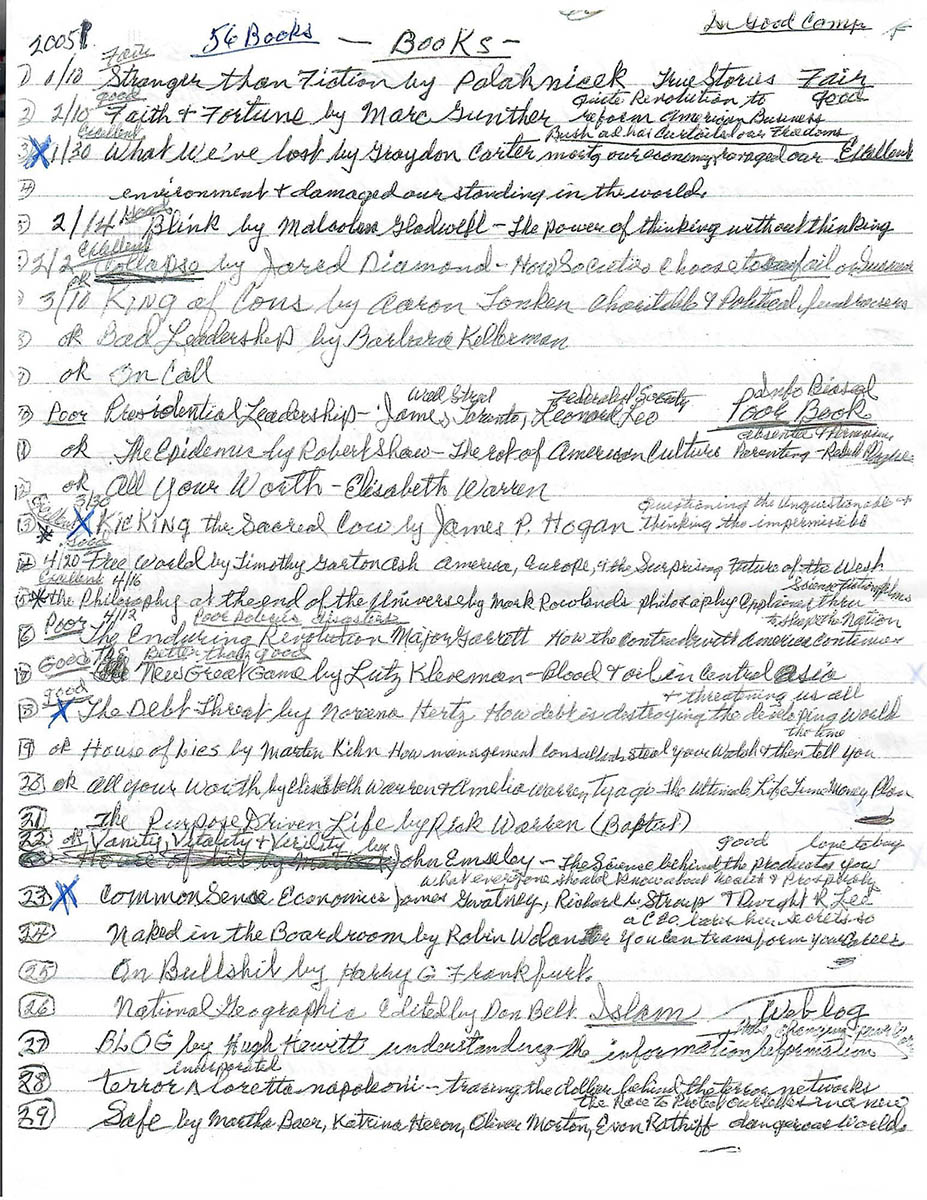 2005 56 Books — Books — In Good Comp
Fair
1) 1/10 Stranger than Fiction by Polahnicek True Stories Fair
good Quite Revolution to good
2) 2/10 Faith + Fortune by Marc Gunther reform American Business
Excellent Bush al hai Curtailed our Freedoms
3) X 1/30 What We've lost by Graydon Carter our economy ravaged our Excellent
4) environment + damaged our standing in the world.
Good
5) 2/14 Blink by Malcolm Gladwell – The power of thinking without thinking
Excellent
2/2 Collapse by Jared Diamond – How Societies Choose to fail or Succeed
ok
3/10 King of Cons by Aaron Tonken Charitible & Political fundraisers
8) ok Bad Leadership by Barbara Kellerman
9) ok On Call
Wall Street Federalist Society Info Biased
10) Poor Presidential Leadership – James Taranto, Leonard Leo Poor Book
absentee + Permissive
11) ok The Epidemic by Robert Shaw – The rot of American Culture Parenting –
12) ok All Your Worth – Elisabeth Warren
Excellent 3/30 Questioning the Unquestionable +
13) * X Kicking the Sacred Cow by James P. Hogan thinking the impermissible
Good
14) 4/20 Free World by Timothy Garton Ash America, Europe, + the Surprising Future of the West
Excellent 4/16 Science fiction films
15) * The Philosophy at the end of the Universe by Mark Rowlands philosophy Explained thru
Poor 4/12 Poor policies disasters to shape the Nation
16) The Enduring Revolution Major Garrett How the contract with America continues
Good The Better than good
17) New Great Game by Lutz Kleveman – Blood + oil in Central Asia X
good + threatning us all
18) X The Debt Threat by Noreena Hertz How debt is destroying the developing World
the time
19) ok House of Lies by Martin Kihn How management consultants steal your Watch + then tell you
20) ok All your Worth by Elisabeth Warren + Amelia Warren Tyagi The Ultimate Life Time Money Plan
21) The Purpose Driven Life by Risk Warren (Baptist)
22 ok Vanity, Vitality + Virility by good love to buy
John Emseley – The Science behind the Products you
What everyone should know about Wealth + Prosperity
23) X Common Sense Economics James Gwatney, Richard L. Stroup + Dwight R Lee
a CEO bares her secrets so
24) Naked in the Boardroom by Robin Wolaner You Can transform your Career
25) On Bullshit by Harry G Frankfurt.
26) National Geographic Edited by Don Belt. Islam Weblog
changing your World
27) BLOG by Hugh Hewitt understanding the information reformation
incorporated
28) Terror Loretta napoleoni – tracing the dollars behind the terror networks
the Race to Protect ourselves in a new
29) Safe by Martha Baer, Katrina Heron, Oliver Morton, Evan Ratliff dangerous World.